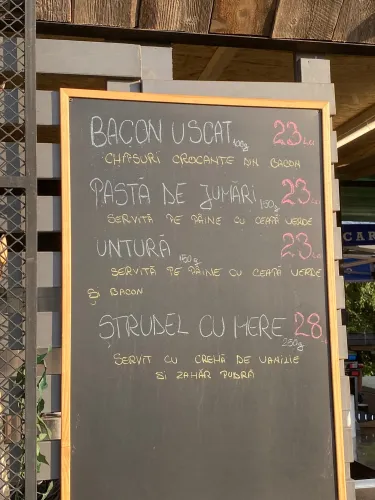 BACON USCAT 100g 23 Lei
CHIPSURI CROCANTE DIN BACON
PASTĂ DE JUMĂRI 150g 23 Lei
SERVITĂ PE PÂINE CU CEAPĂ VERDE
UNTURĂ 150g 23 Lei
SERVITĂ PE PÂINE CU CEAPĂ VERDE
ȘI BACON
ȘTRUDEL CU MERE 250g 28
SERVIT CU CREMĂ DE VANILIE
SI ZAHĂR PUDRĂ
CAR